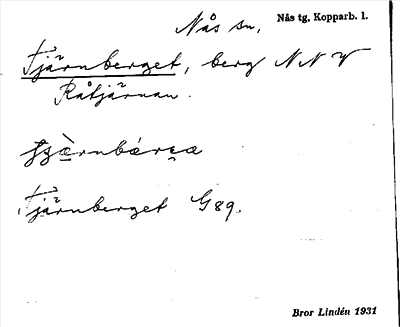 Nås sn. Nås tg, Kopparb. l.
Tjärnberget, berg N N V
Råtjärnan.
Tjärnberget G89.
Bror Lindén 1931